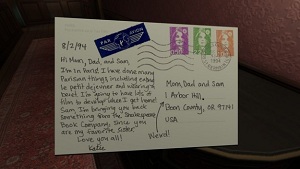 PAR AVION
8/2/94
Hi Mom, Dad, and Sam,
I'm in Paris! I have done many
Parisian things, including eating
le petit dejeuner and wearing a
beret. I'm going to have lots of
film to develop when I get home!
Sam, I'm bringing you back
something from the Shakespeare
Book Company, since you
are my favorite sister.
Love you all!
Katie
Weird!
Mom, Dad and Sam
1 Arbor Hill
Boon County, OR 97741
USA